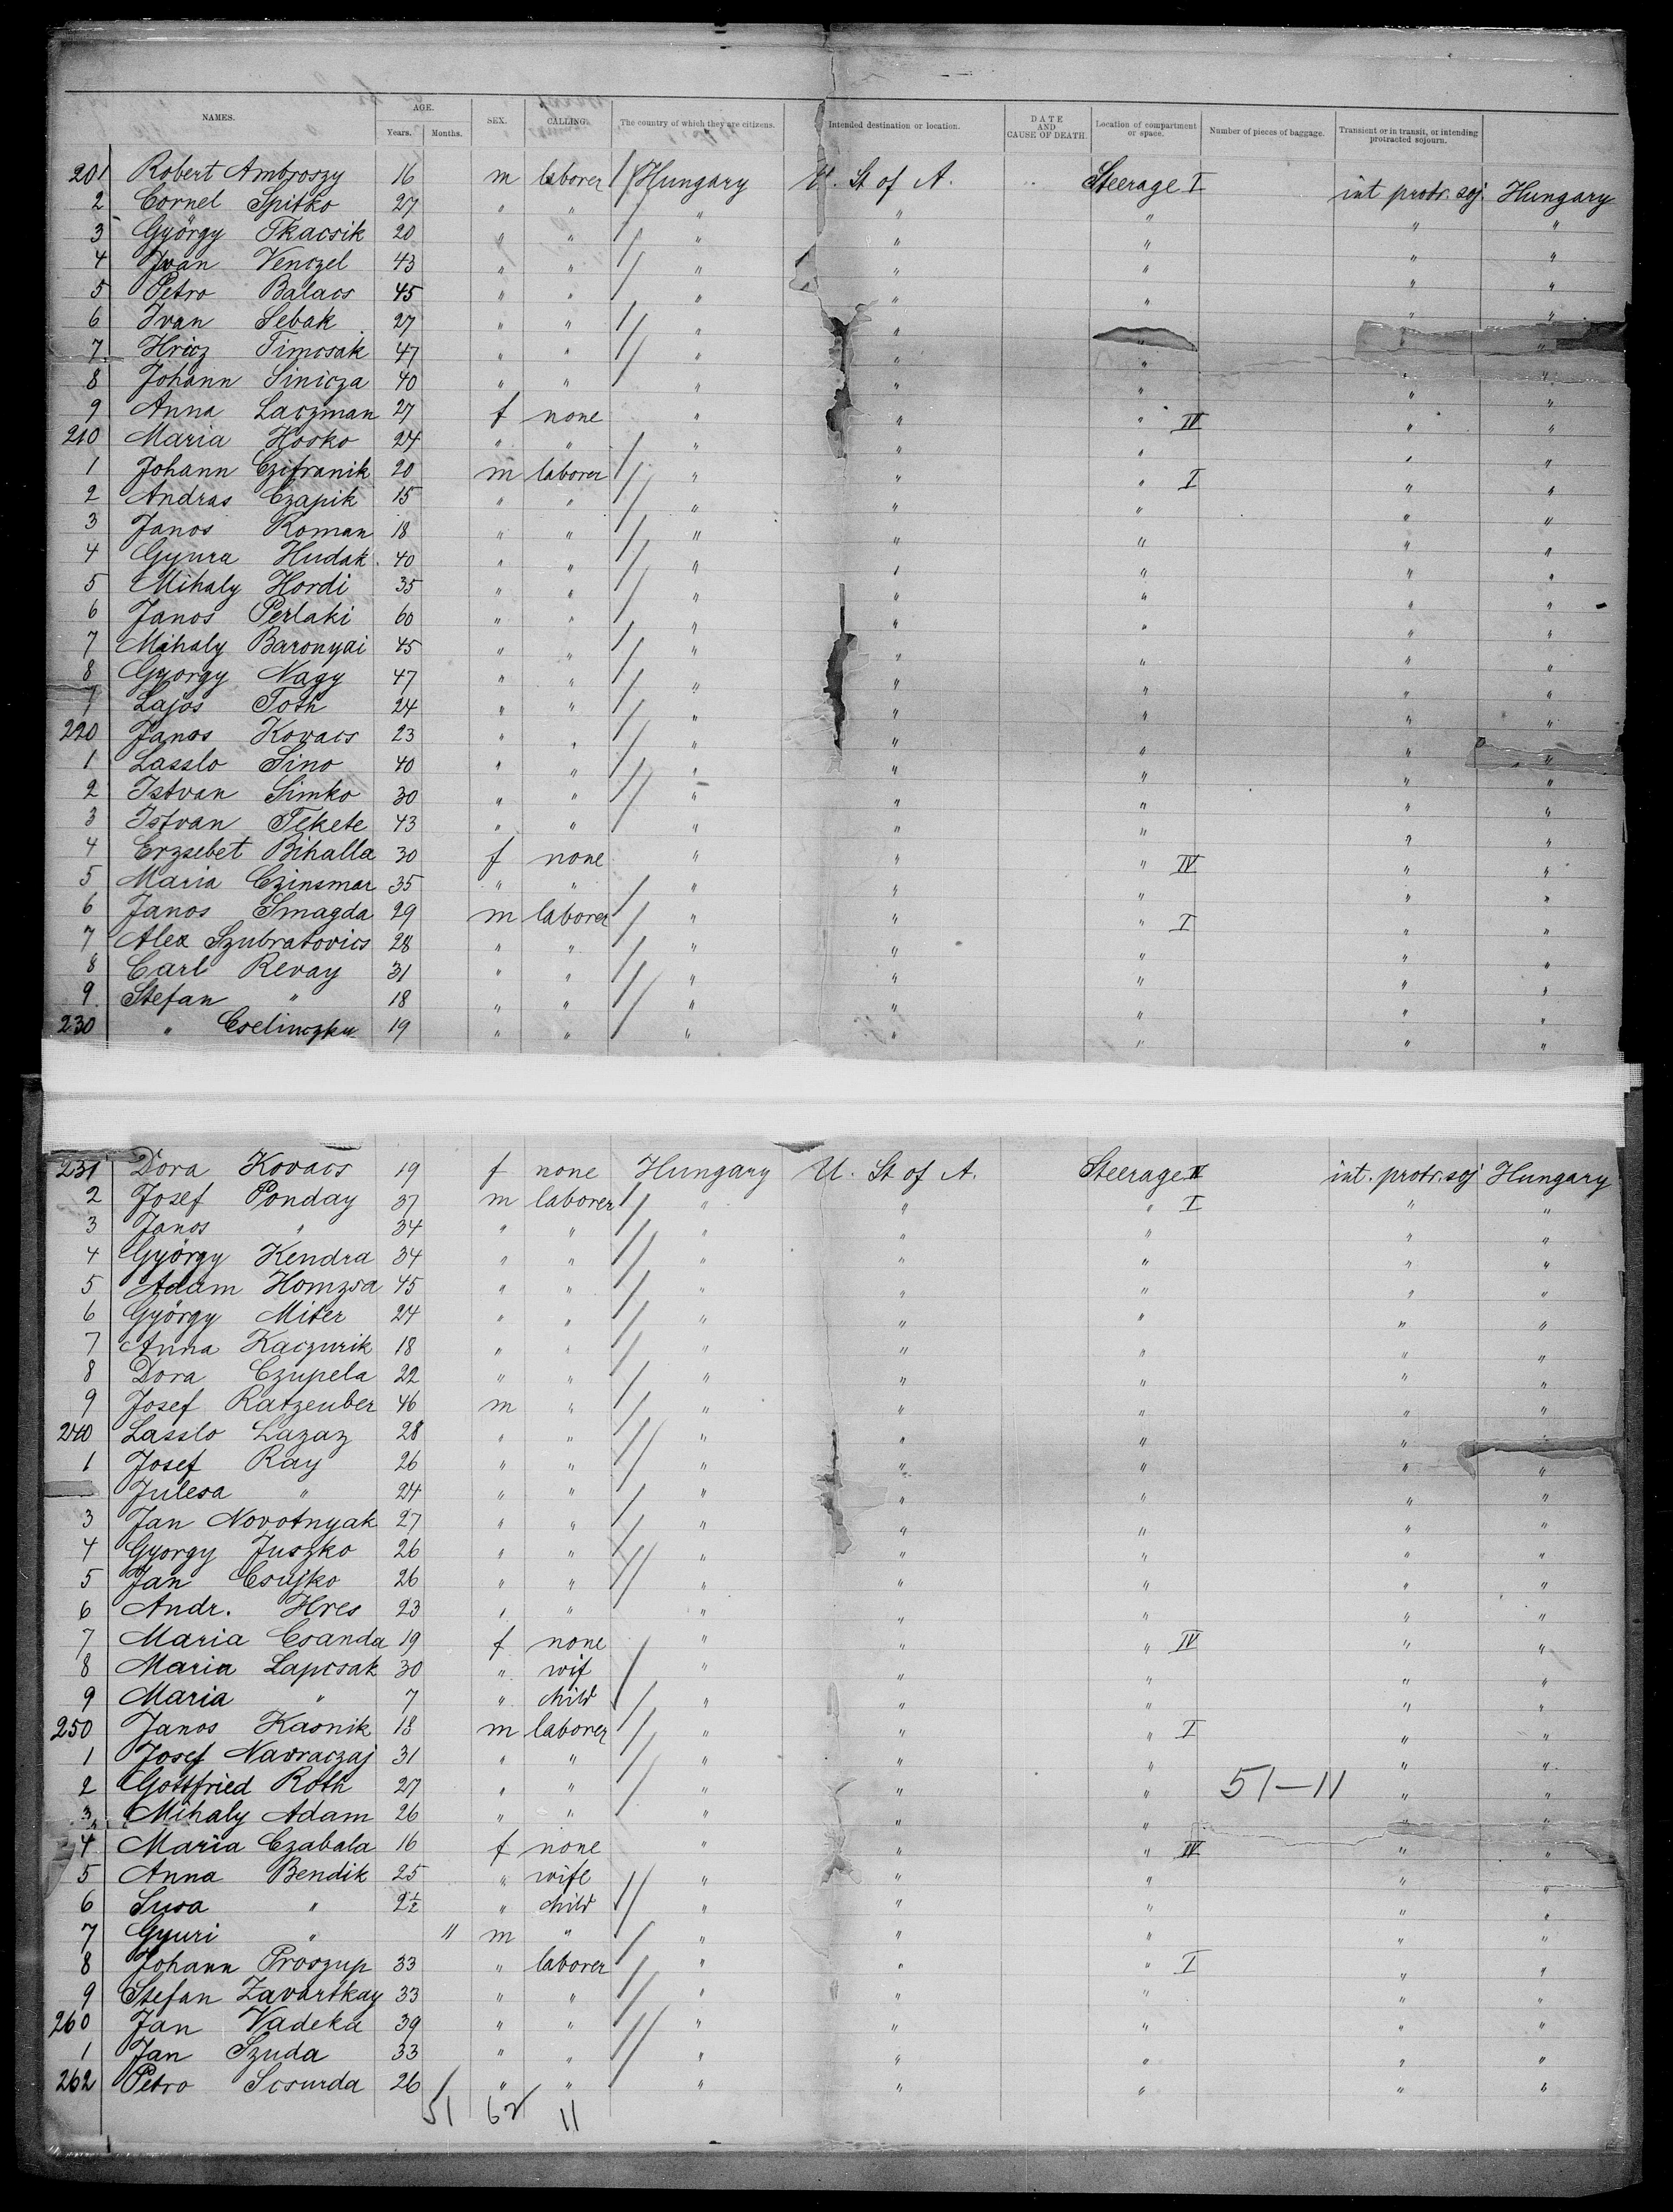 NAMES. AGE. Years. Months. SEX. CALLING. The country of which they are citizens. Intended destination or location. DATE AND CAUSE OF DEATH. Location of compartment or space. Number of pieces of baggage. Transient or in transit, or intending protracted sojourn.
201 Robert Ambroszy 16 m laborer Hungary U. St of A. Steerage I int protr. soj. Hungary
2 Cornel Spitko 27 " " " " " " "
3 György Tkacsik 20 " " " " " " "
4 Ivan Venczel 43 " " " " " " "
5 Petro Balacs 45 " " " " " " "
6 Ivan Sebak 27 " " " " " " "
7 Hricz Timcsak 47 " " " " " " "
8 Johann Sinicza 40 " " " " " " "
9 Anna Laczman 27 f none " " " IV " "
210 Maria Hosko 24 " " " " " " "
1 Johann Czifranik 20 m laborer " " " I " "
2 Andras Czapik 15 " " " " " " "
3 Janos Roman 18 " " " " " " "
4 Gyura Hudak 40 " " " " " " "
5 Mihaly Hordi 35 " " " " " " "
6 Janos Perlaki 60 " " " " " " "
7 Mihaly Baronyai 45 " " " " " " "
8 Gyorgy Nagy 47 " " " " " " "
Lajos Toth 24 " " " " " " "
220 Janos Kovacs 23 " " " " " " "
1 Lasslo Sino 40 " " " " " " "
2 Istvan Simko 30 " " " " " " "
3 Istvan Fekete 43 " " " " " " "
4 Erzsebet Bihalla 30 f none " " " IV " "
5 Maria Czinsmar 35 " " " " " " "
6 Janos Smagda 29 m laborer " " " I " "
7 Alex Szubratovics 28 " " " " " " "
8 Carl Revay 31 " " " " " " "
9. Stefan " 18 " " " " " " "
230 " Cselinczku 19 " " " " " " "
231 Dora Kovacs 19 f none Hungary U. St of A. Steerage IV int. protr. soj Hungary
2 Josef Ponday 37 m laborer " " " I " "
3 Janos " 34 " " " " " " "
4 György Kendra 34 " " " " " " "
5 Adam Homzsa 45 " " " " " " "
6 György Miter 24 " " " " " " "
7 Anna Kaczurik 18 " " " " " " "
8 Dora Czupela 22 " " " " " " "
9 Josef Ratzenber 46 m " " " " " "
240 Lasslo Lazaz 28 " " " " " " "
1 Josef Ray 26 " " " " " " "
Julesa " 24 " " " " " " "
3 Jan Novotnyak 27 " " " " " " "
4 Gyorgy Juszko 26 " " " " " " "
5 Jan Csujko 26 " " " " " " "
6 Andr. Hres 23 " " " " " " "
7 Maria Csanda 19 f none " " " IV " "
8 Maria Lapcsak 30 " wif " " " " "
9 Maria " 7 " child " " " " "
250 Janos Kasnik 18 m laborer " " " I " "
1 Josef Navraczaj 31 " " " " " " "
2 Gottfried Roth 27 " " " " " 51-11 " "
3 Mihaly Adam 26 " " " " " " "
4 Maria Czabala 16 f none " " " IV " "
5 Anna Bendik 25 " wife " " " " "
6 Susa " 2½ " child " " " " "
7 Gyuri " 11 m " " " " " "
8 Johann Proszup 33 " laborer " " " I " "
9 Stefan Zavartkay 33 " " " " " " "
260 Jan Vadeka 39 " " " " " " "
1 Jan Szuda 33 " " " " " " "
262 Petro Scsurda 26 " " " " " " "
51 62 11